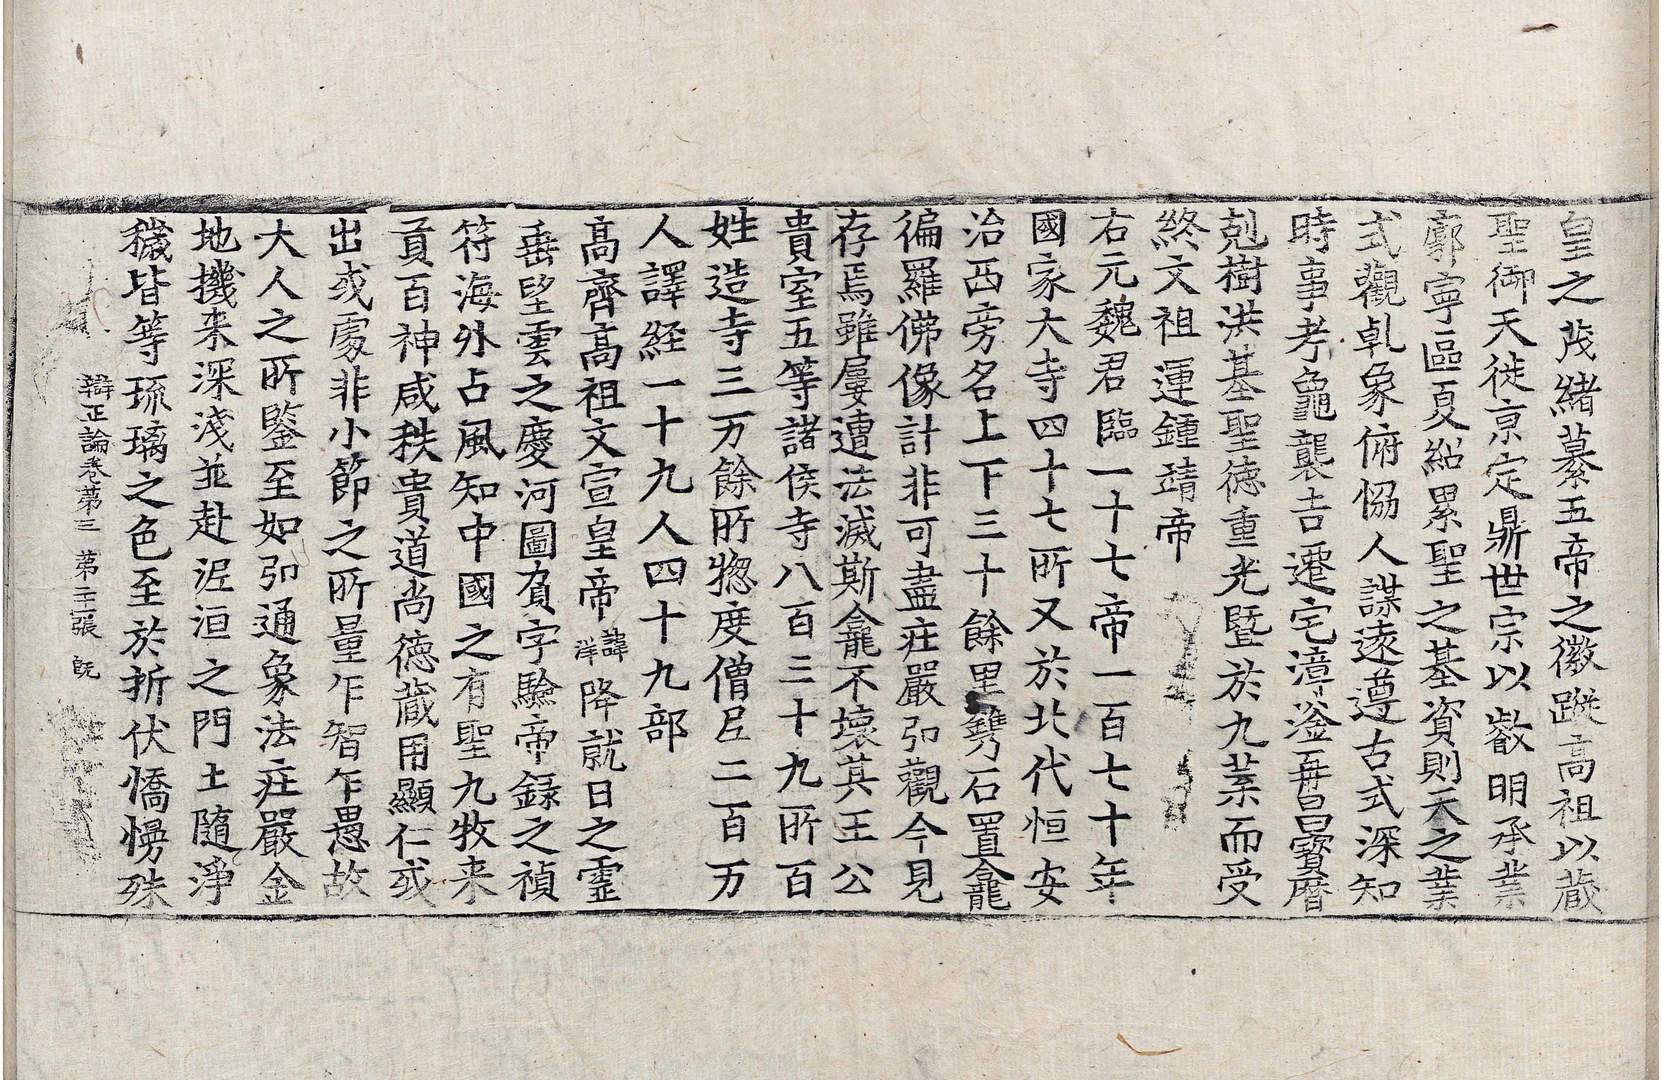 皇之茂緒纂五帝之徽蹤高祖以蕆
聖御天徙京定鼎世宗以叡明承業
廓寧區夏紹累聖之基資則天之業
式觀乹象俯恊人謀遠遵古式深知
時事考龜襲吉遷宅漳滏再昌寶曆
剋樹洪基聖德重光暨於九葉而受
終文祖運鍾靖帝
右元魏君臨一十七帝一百七十年
國家大寺四十七所又於北代恒安
治西旁名上下三十餘里鐫石置龕
徧羅佛像計非可盡庄嚴弘觀今見
存焉雖屢遭法滅斯龕不壞其王公
貴室五等諸侯寺八百三十九所百
姓造寺三万餘所惣度僧尼二百万
人譯経一十九人四十九部
高齊高祖文宣皇帝諱洋降就日之霊
垂望雲之慶河圖負字驗帝録之禎
符海外占風知中國之有聖九牧来
貢百神咸秩貴道尚德蔵用顯仁或
出或處非小節之所量乍智乍愚故
大人之所鑒至如弘通象法庄嚴金
地機来深淺並赴泥洹之門土随淨
穢皆等琉璃之色至於折伏憍慢殊
辯正論卷第三 第二十張 旣